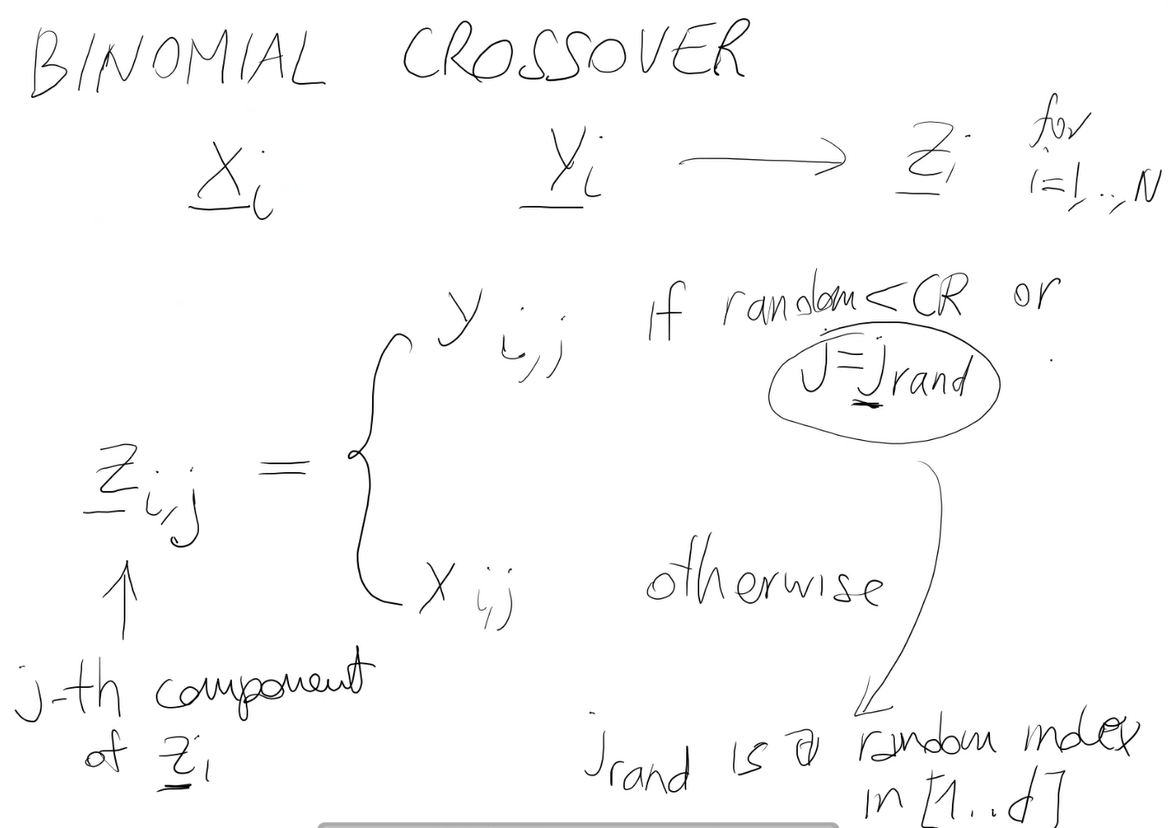 BINOMIAL CROSSOVER
x_i y_i → z_i for i=1,..,N
y_{i,j} if random < CR or
j=j_rand
z_{i,j} =
x_{i,j} otherwise
j-th component
of z_i
j_rand is a random index
in [1..d]